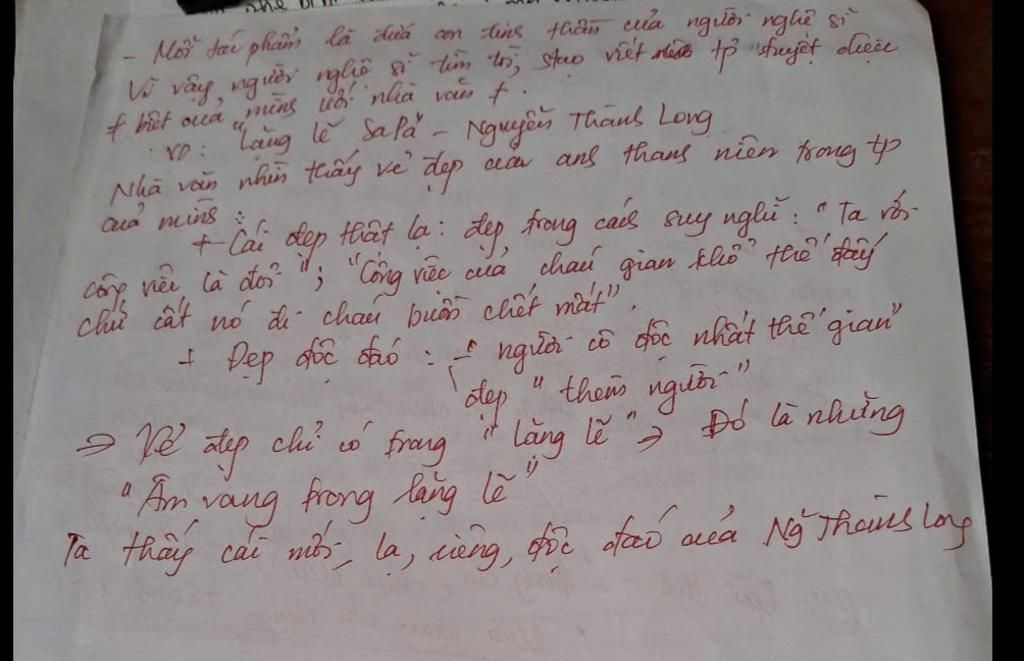 - Mỗi tác phẩm là đứa con tinh thần của người nghệ sĩ
Vì vậy, người nghệ sĩ tìm tòi, sáng tạo viết nên tp tuyệt diệu
≠ biệt của mình với nhà văn ≠.
VD: "Lặng lẽ SaPa" - Nguyễn Thành Long
Nhà văn nhìn thấy vẻ đẹp của anh thanh niên trong tp
của mình:
+ Cái đẹp thật lạ: đẹp trong cách suy nghĩ: "Ta với
công việc là đôi"; "Công việc của cháu gian khổ thế đấy
chứ cất nó đi cháu buồn chết mất".
+ Đẹp độc đáo: - "người cô độc nhất thế gian"
đẹp "thèm người"
=> Vẻ đẹp chỉ có trong "lặng lẽ" => Đó là những
"Âm vang trong lặng lẽ"
Ta thấy cái mới, lạ, riêng, độc đáo của Ng Thành Long